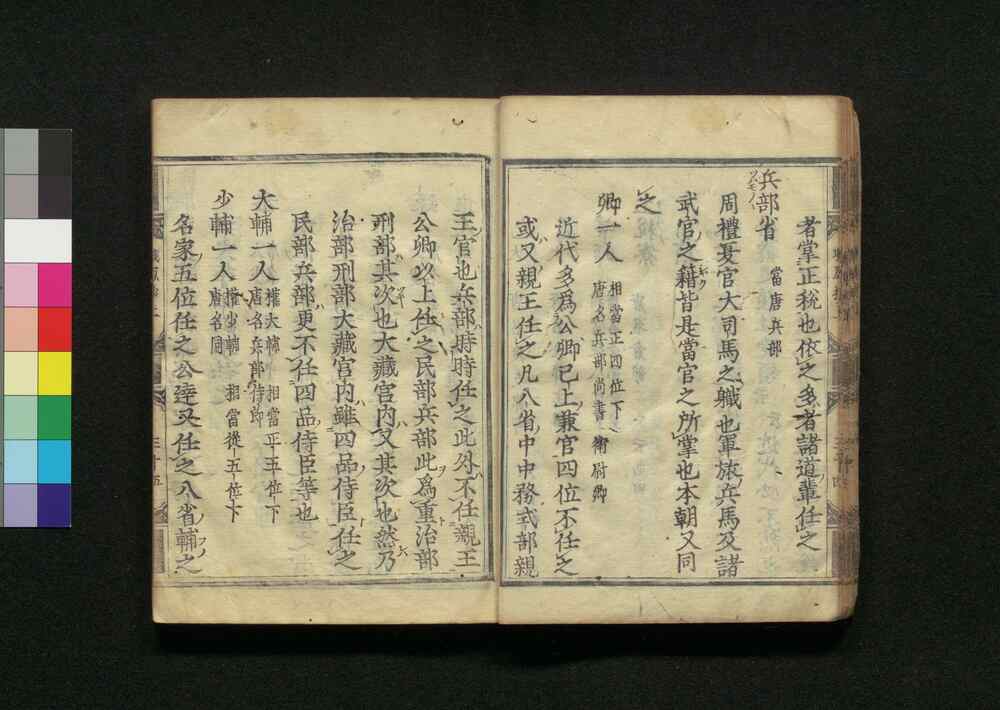 者掌正税也依之多者諸道輩任之
兵部省 當唐兵部
周禮夏官大司馬之職也軍旅兵馬及諸
武官之藉皆是當官之所掌也本朝又同
之
卿一人 相當正四位下 唐名兵部尚書 衛尉卿
近代多為公卿已上兼官四位不任之
或又親王任之凡八省中中務式部親
王官也兵部時時任之此外不任親王
公卿以上任之民部兵部此為重治部
刑部其次也大藏宮内又其次也然乃
治部刑部大藏宮内雖四品侍臣任之
民部兵部更不任四品侍臣等也
大輔一人 權大輔一人 相當正五位下 唐名兵部侍郎
少輔一人 權少輔 相當從五位下 唐名同
名家五位任之公達又任之八省輔之